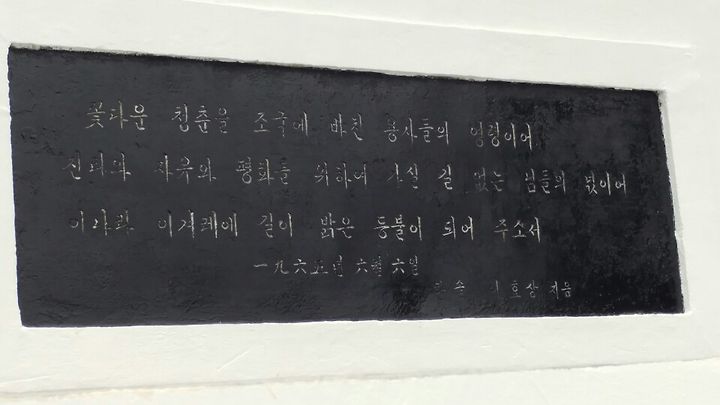 꽃다운 청춘을 조국에 바친 용사들의 영령이어
진리와 자유와 평화를 위하여 가실 길 없는 님들의 넋이어
이나라 이겨레에 길이 밝은 등불이 되어 주소서
一九六五년 六월 六일
호상 지음